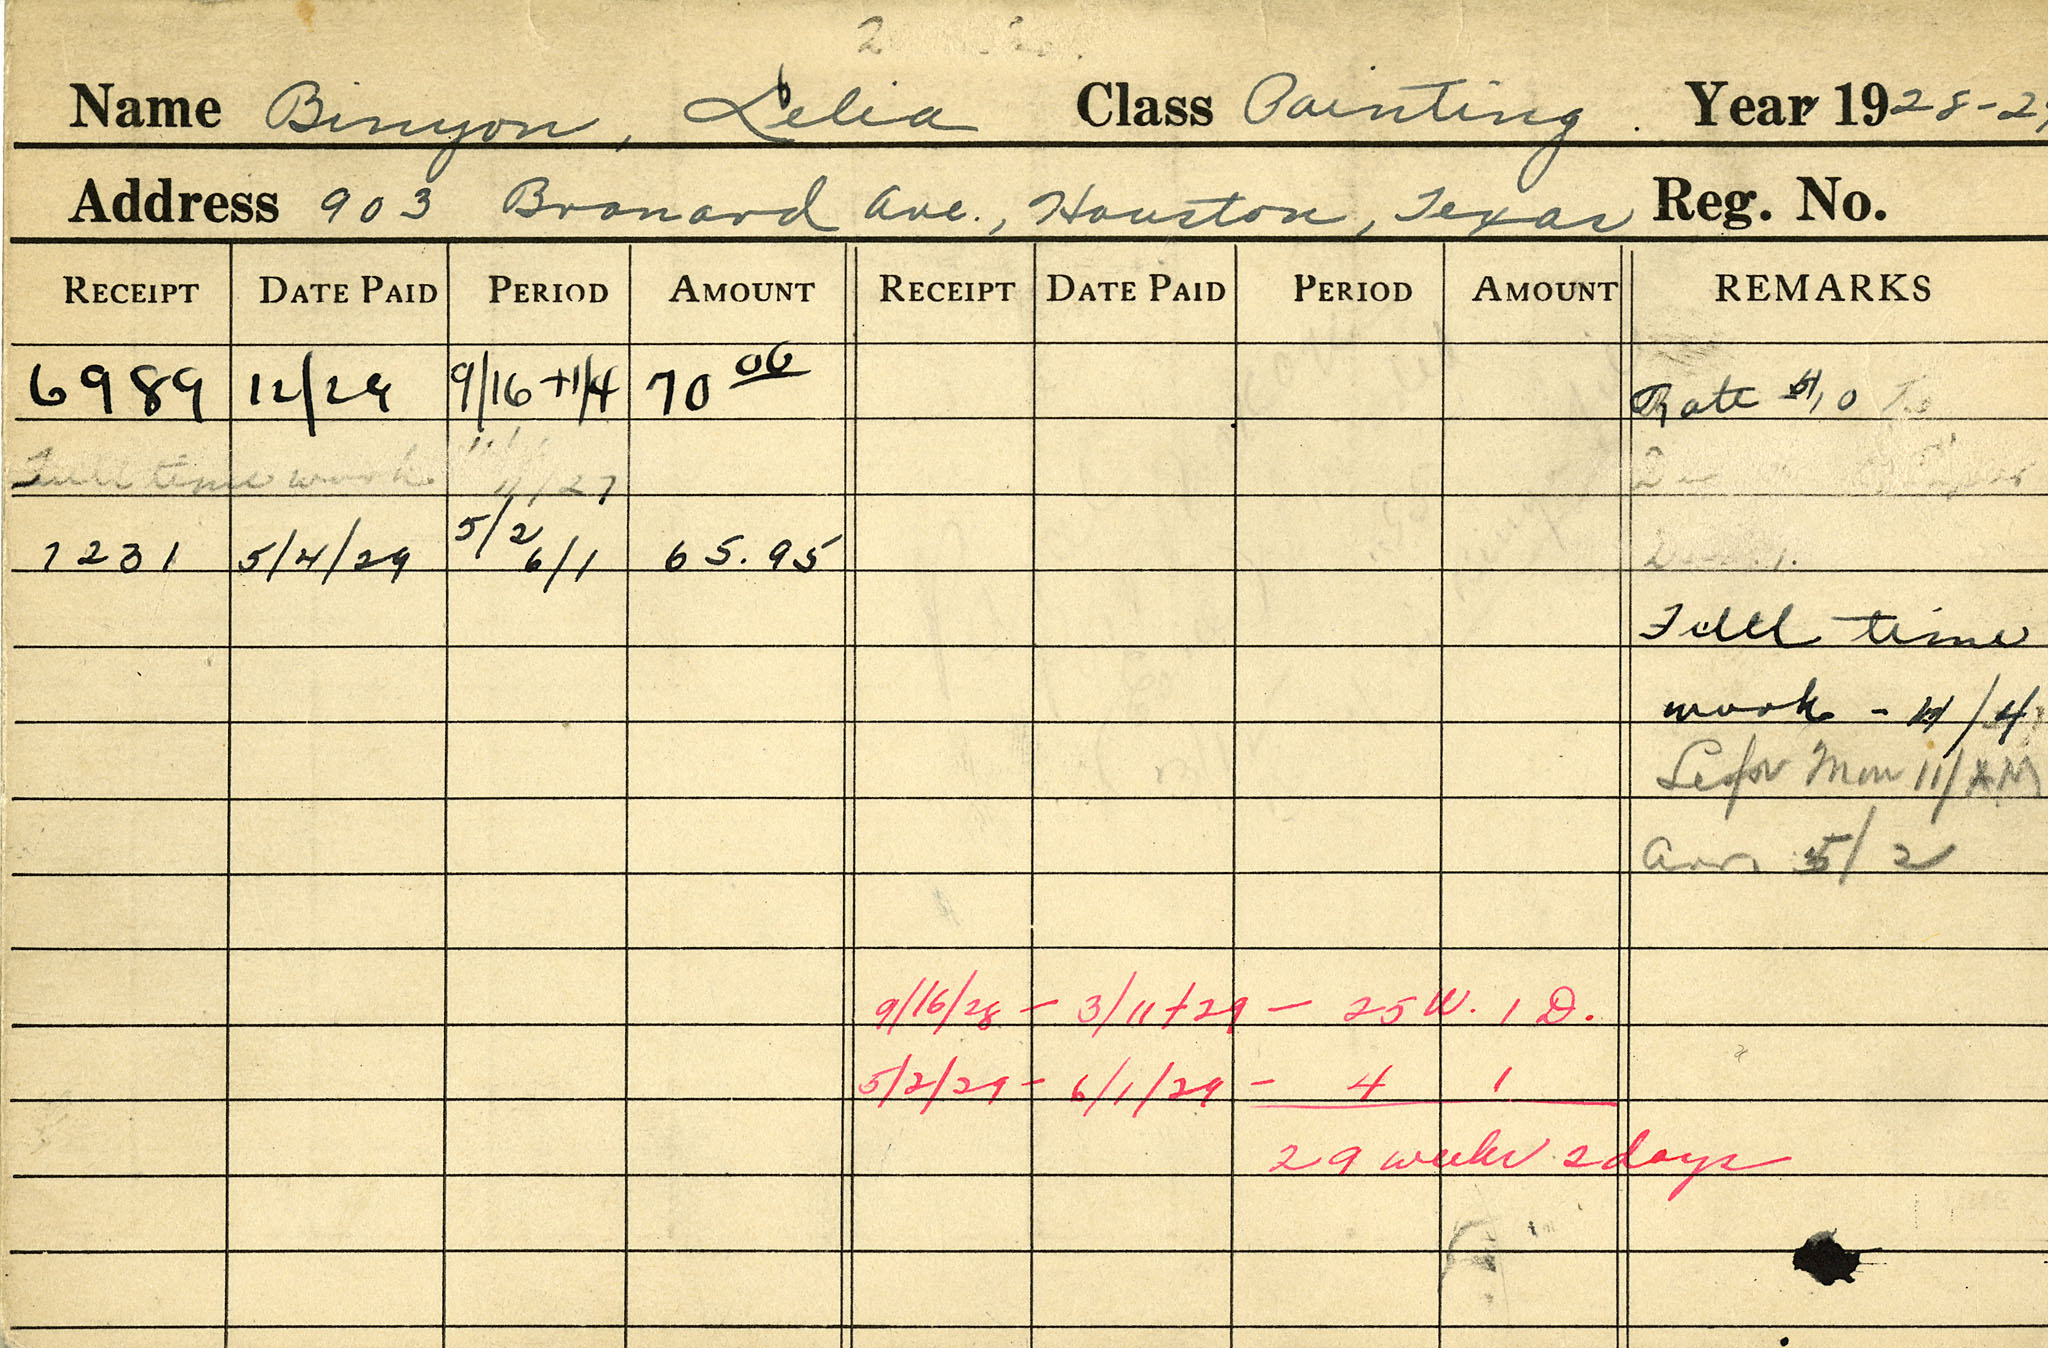 Name Binyon, Lelia Class Painting Year 1928-29
Address 903 Branard Ave., Houston, Texas Reg. No.
RECEIPT DATE PAID PERIOD AMOUNT RECEIPT DATE PAID PERIOD AMOUNT REMARKS
6989 12/29 9/16 + 1/4 70 00 Rate $10 To
Full time work 11/27
7231 5/4/29 5/2 6/1 65.95
Full time
work - 11/4
Le for Mon 11/AM
Arr. 5/2
9/16/28 - 3/11/29 - 25 W. 1 D.
5/2/29 - 6/1/29 - 4 1
29 weeks 2 days